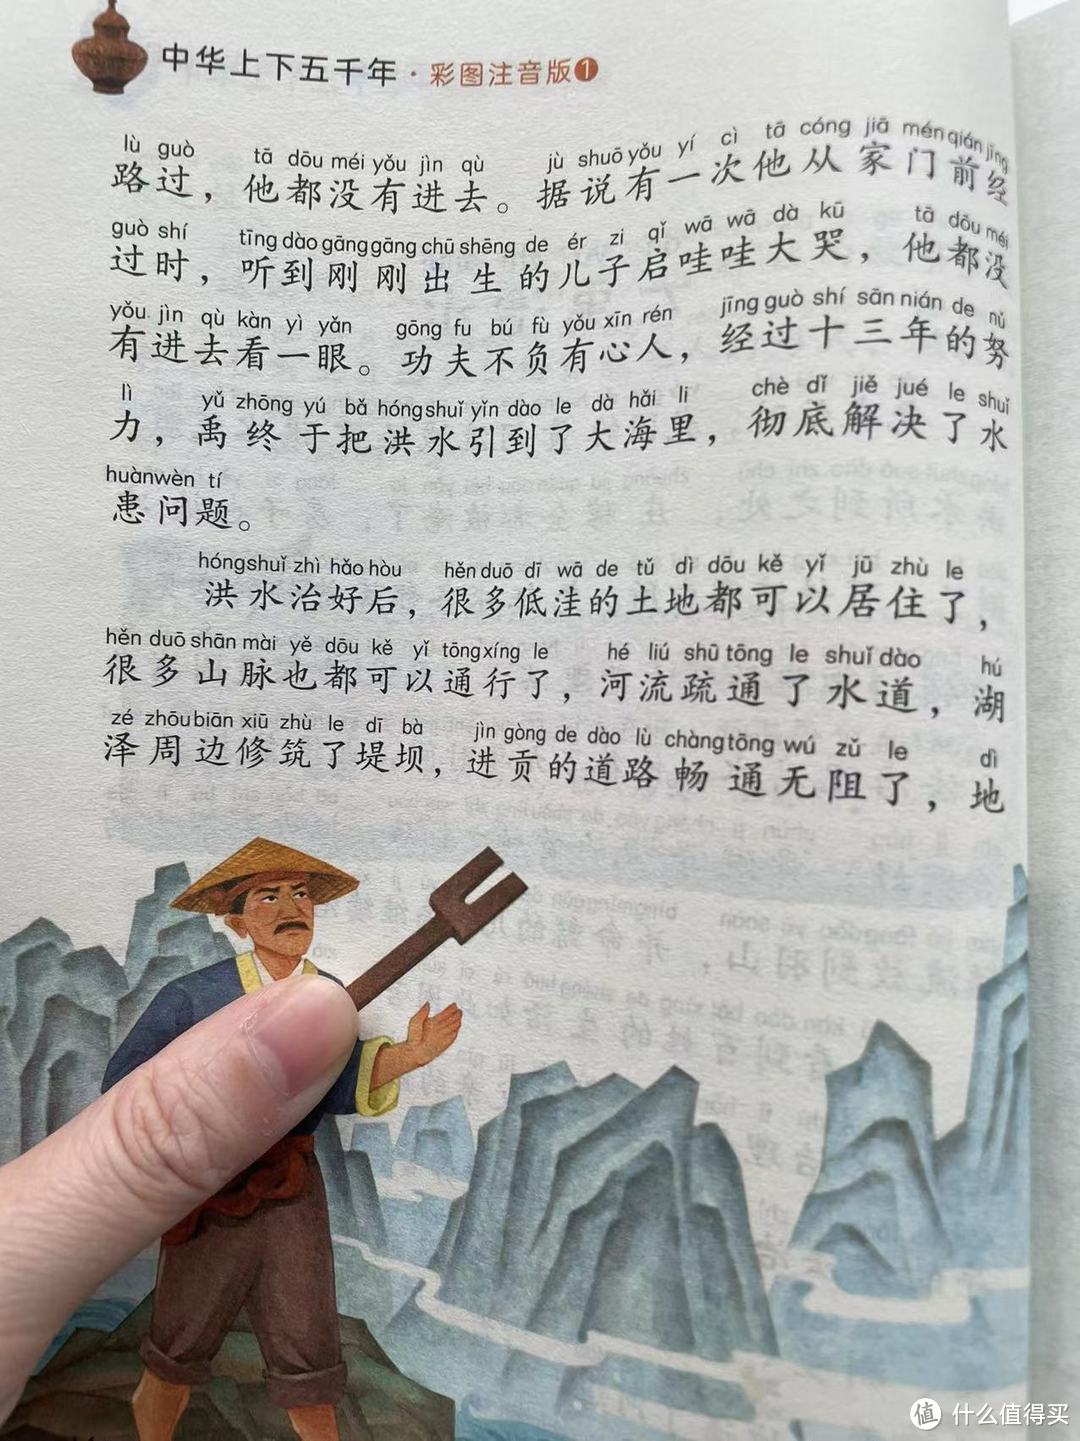 中华上下五千年·彩图注音版1
lù guò tā dōu méi yǒu jìn qù jù shuō yǒu yí cì tā cóng jiā mén qián jīng
路过，他都没有进去。据说有一次他从家门前经
guò shí tīng dào gāng gāng chū shēng de ér zi qǐ wā wā dà kū tā dōu méi
过时，听到刚刚出生的儿子启哇哇大哭，他都没
yǒu jìn qù kàn yì yǎn gōng fu bú fù yǒu xīn rén jīng guò shí sān nián de nǔ
有进去看一眼。功夫不负有心人，经过十三年的努
lì yǔ zhōng yú bǎ hóng shuǐ yǐn dào le dà hǎi li chè dǐ jiě jué le shuǐ
力，禹终于把洪水引到了大海里，彻底解决了水
huàn wèn tí
患问题。
hóng shuǐ zhì hǎo hòu hěn duō dī wā de tǔ dì dōu kě yǐ jū zhù le
洪水治好后，很多低洼的土地都可以居住了，
hěn duō shān mài yě dōu kě yǐ tōng xíng le hé liú shū tōng le shuǐ dào hú
很多山脉也都可以通行了，河流疏通了水道，湖
zé zhōu biān xiū zhù le dī bà jìn gòng de dào lù chàng tōng wú zǔ le dì
泽周边修筑了堤坝，进贡的道路畅通无阻了，地
值 什么值得买